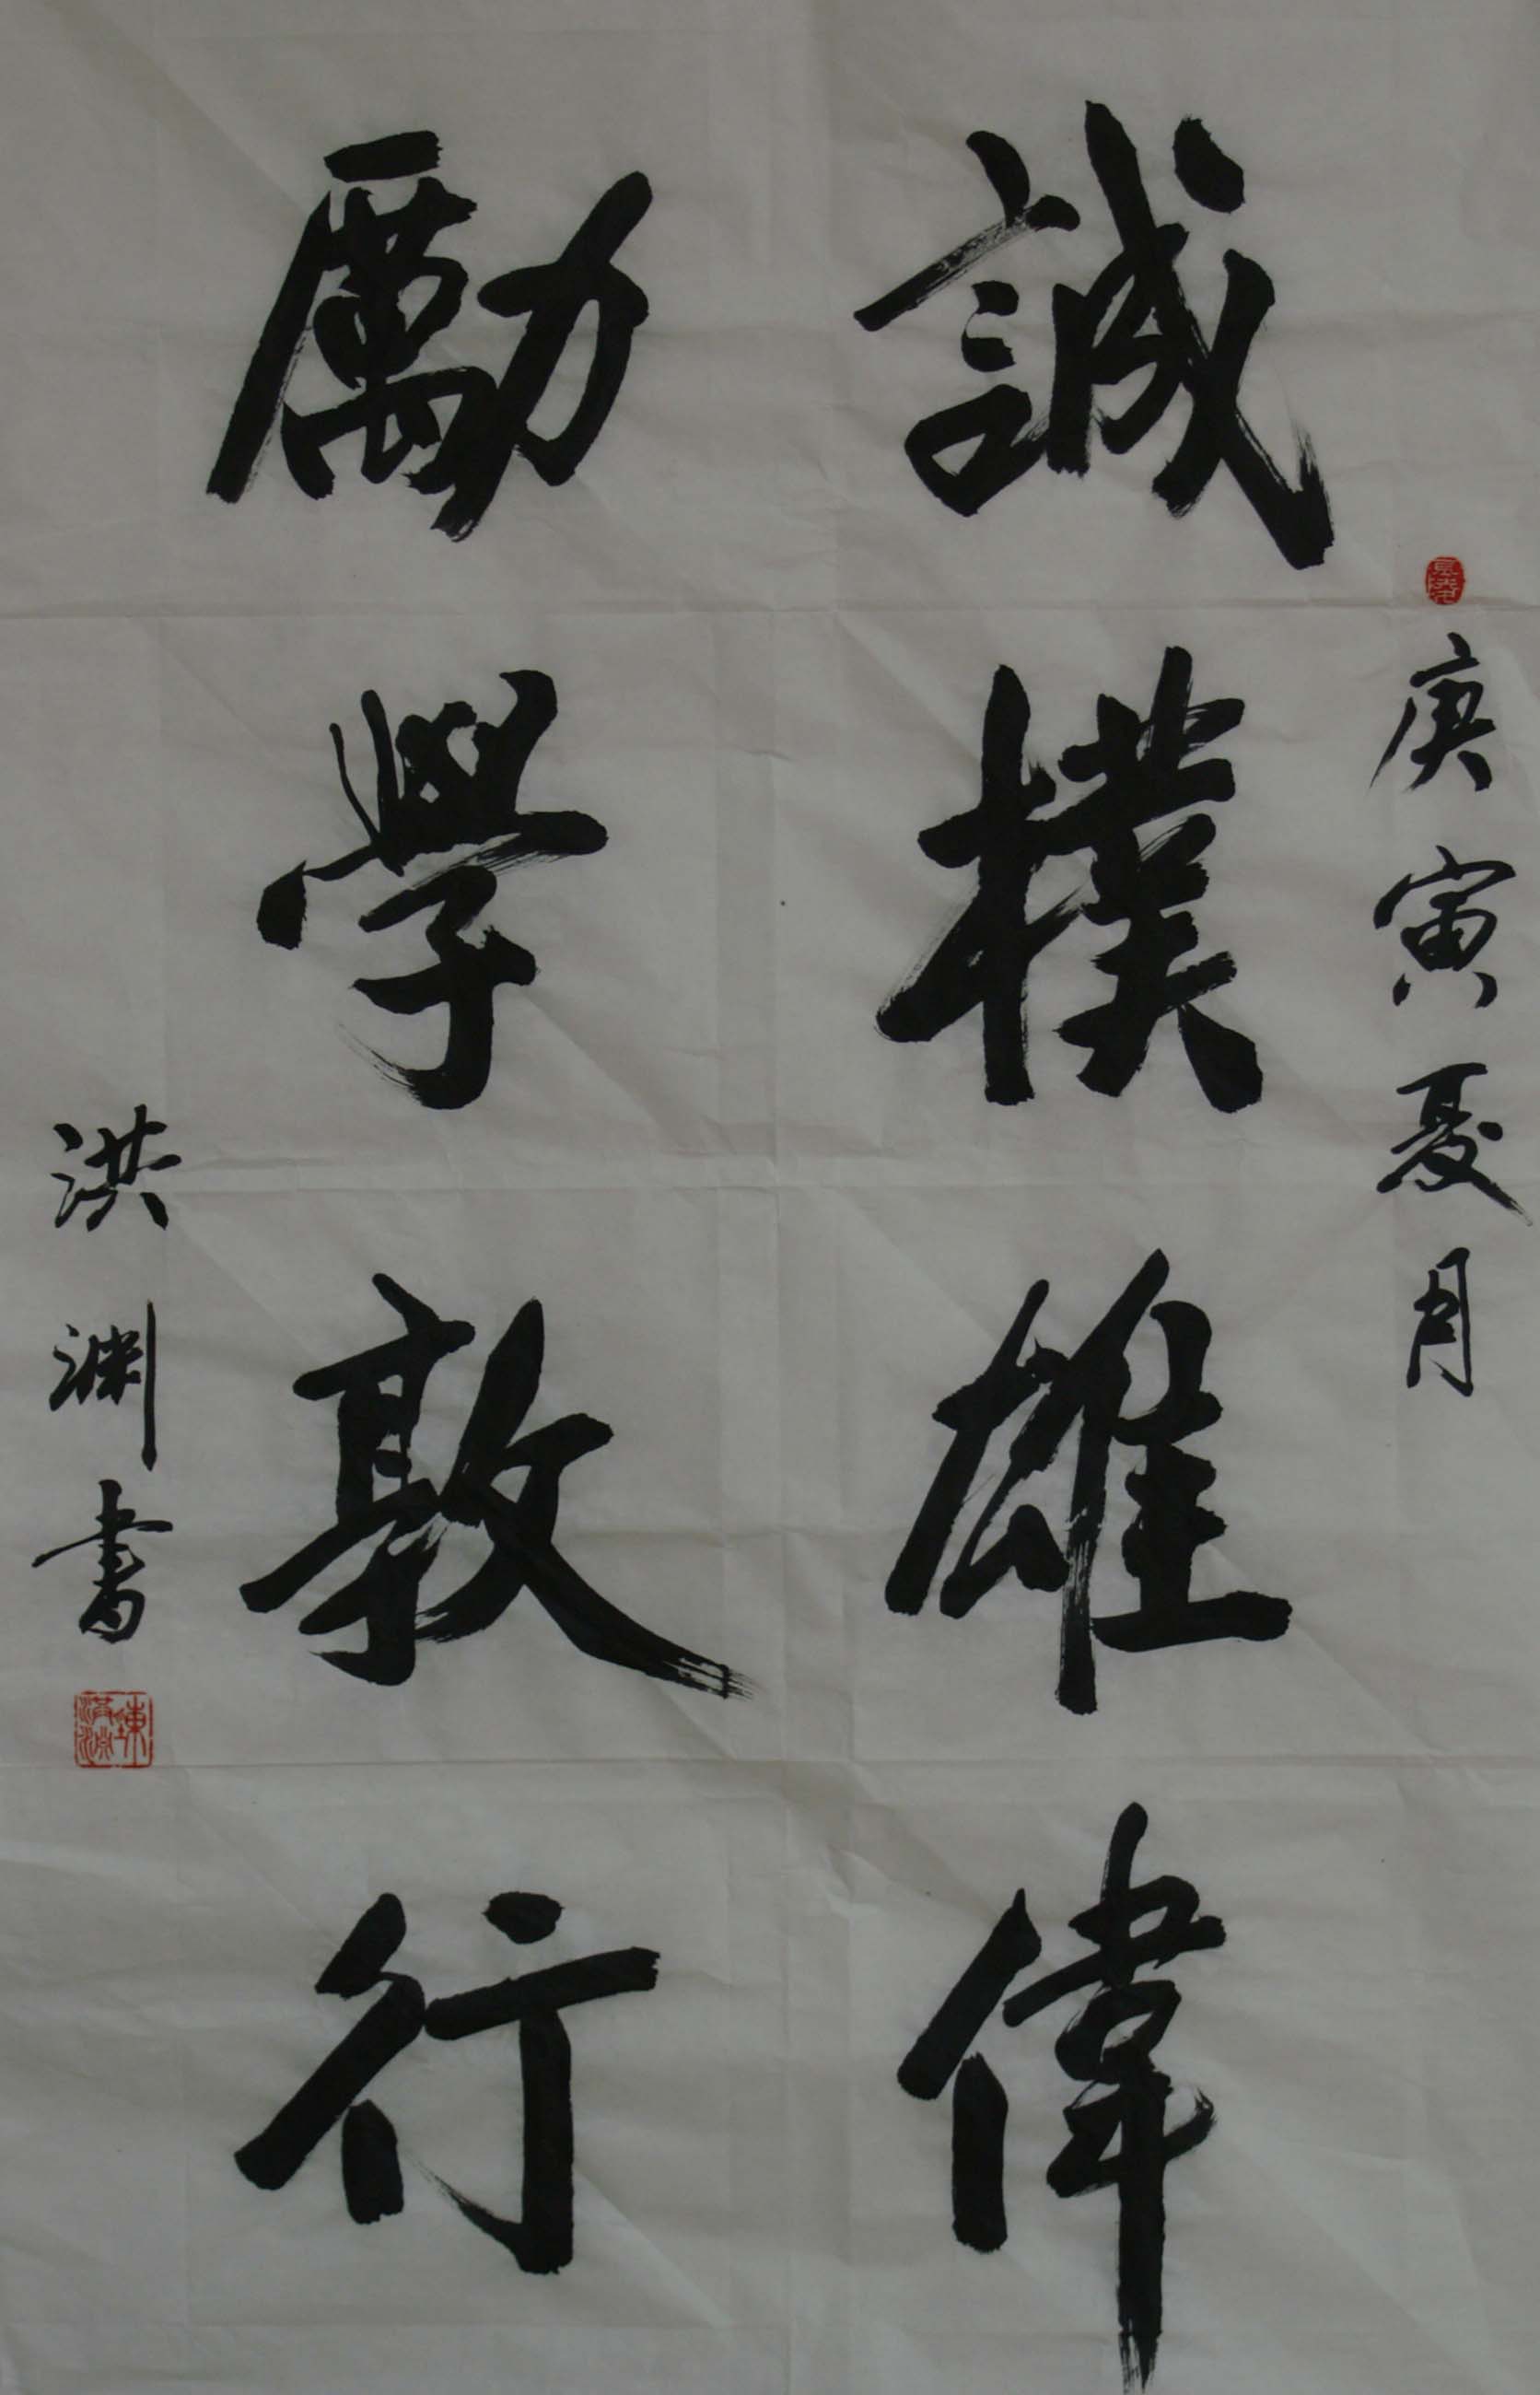 庚寅夏月
誠樸雄偉
勵學敦行
洪渊書